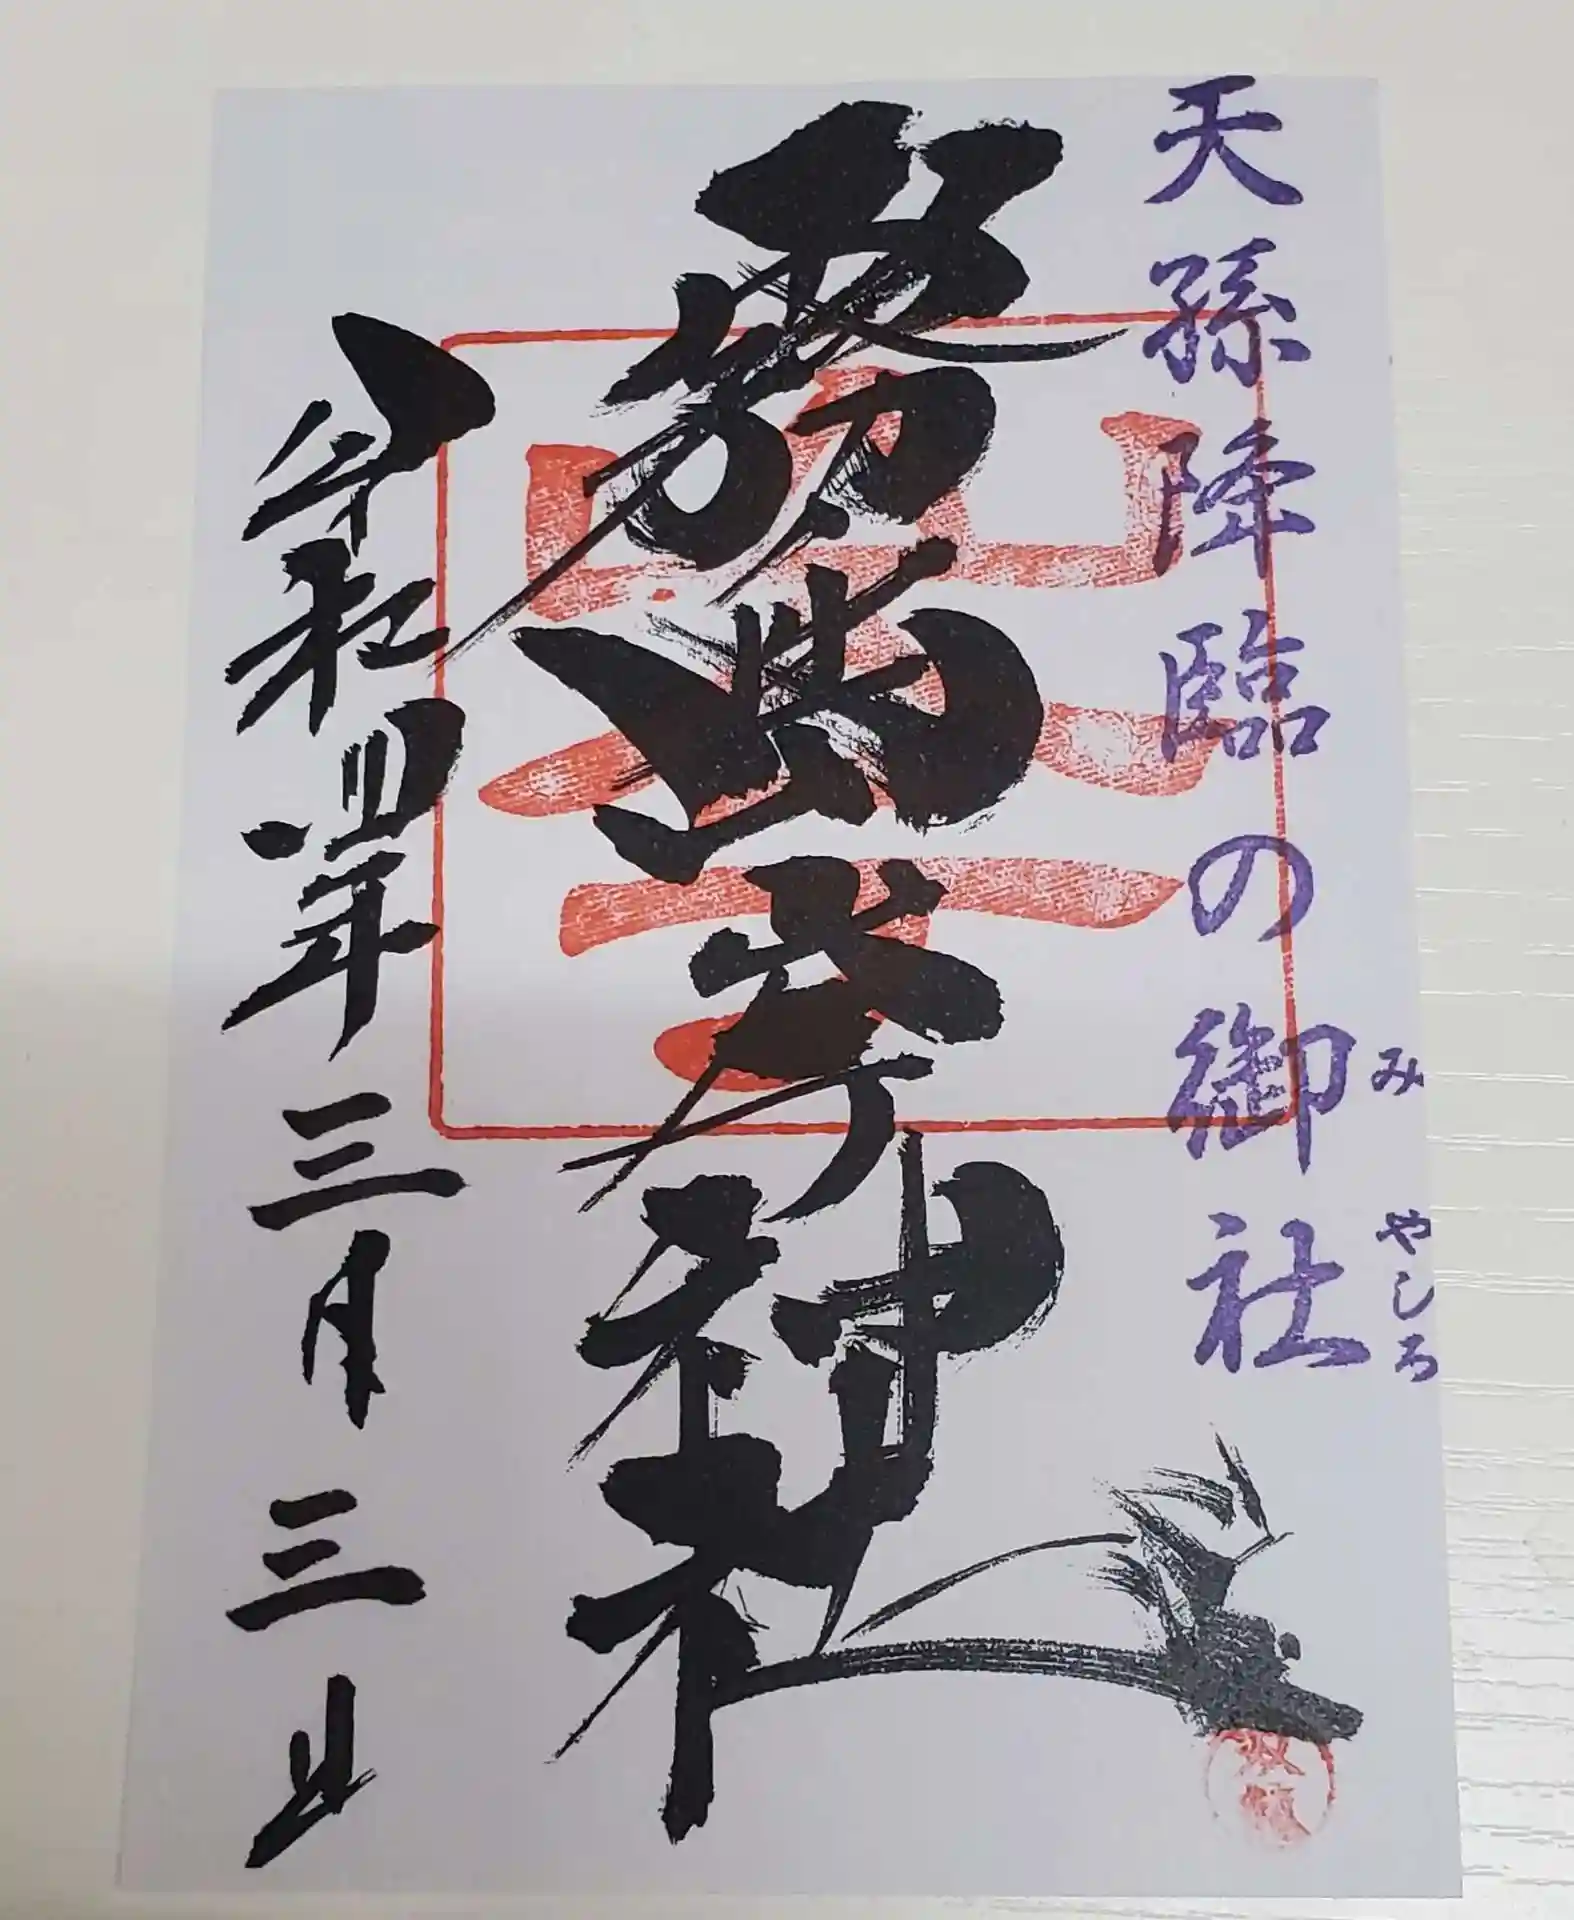 天孫降臨の御社
み やしろ
霧島岑神社
令和四年三月三日